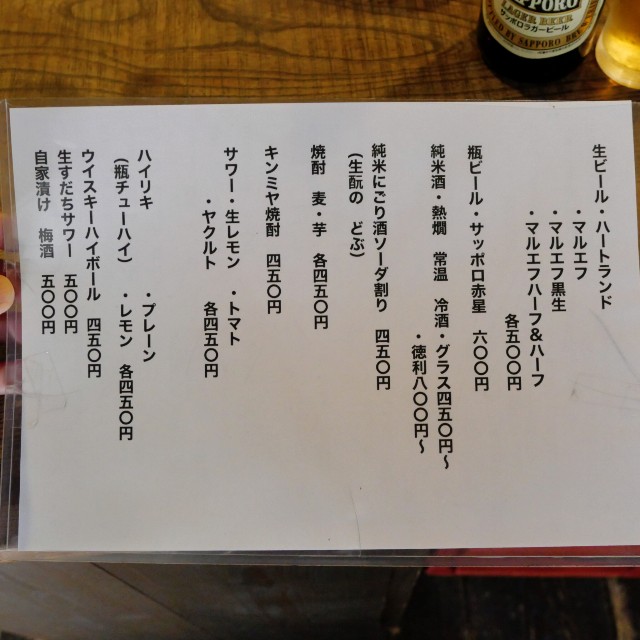 SAPPORO
LAGER BEER
サッポロラガービール
生ビール・ハートランド
・マルエフ
・マルエフ黒生
・マルエフハーフ&ハーフ
各五〇〇円
瓶ビール・サッポロ赤星 六〇〇円
純米酒・熱燗 常温 冷酒・グラス四五〇円~
・徳利八〇〇円~
純米にごり酒ソーダ割り 四五〇円
(生酛の どぶ)
焼酎 麦・芋 各四五〇円
キンミヤ焼酎 四五〇円
サワー・生レモン ・トマト
・ヤクルト 各四五〇円
ハイリキ ・プレーン
(瓶チューハイ) ・レモン 各四五〇円
ウイスキーハイボール 四五〇円
生すだちサワー 五〇〇円
自家漬け 梅酒 五〇〇円